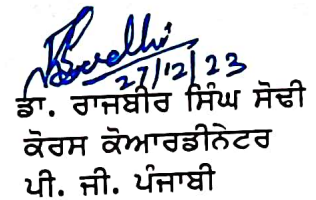 27/12/23
ਡਾ. ਰਾਜਬੀਰ ਸਿੰਘ ਸੋਢੀ
ਕੋਰਸ ਕੋਆਰਡੀਨੇਟਰ
ਪੀ. ਜੀ. ਪੰਜਾਬੀ